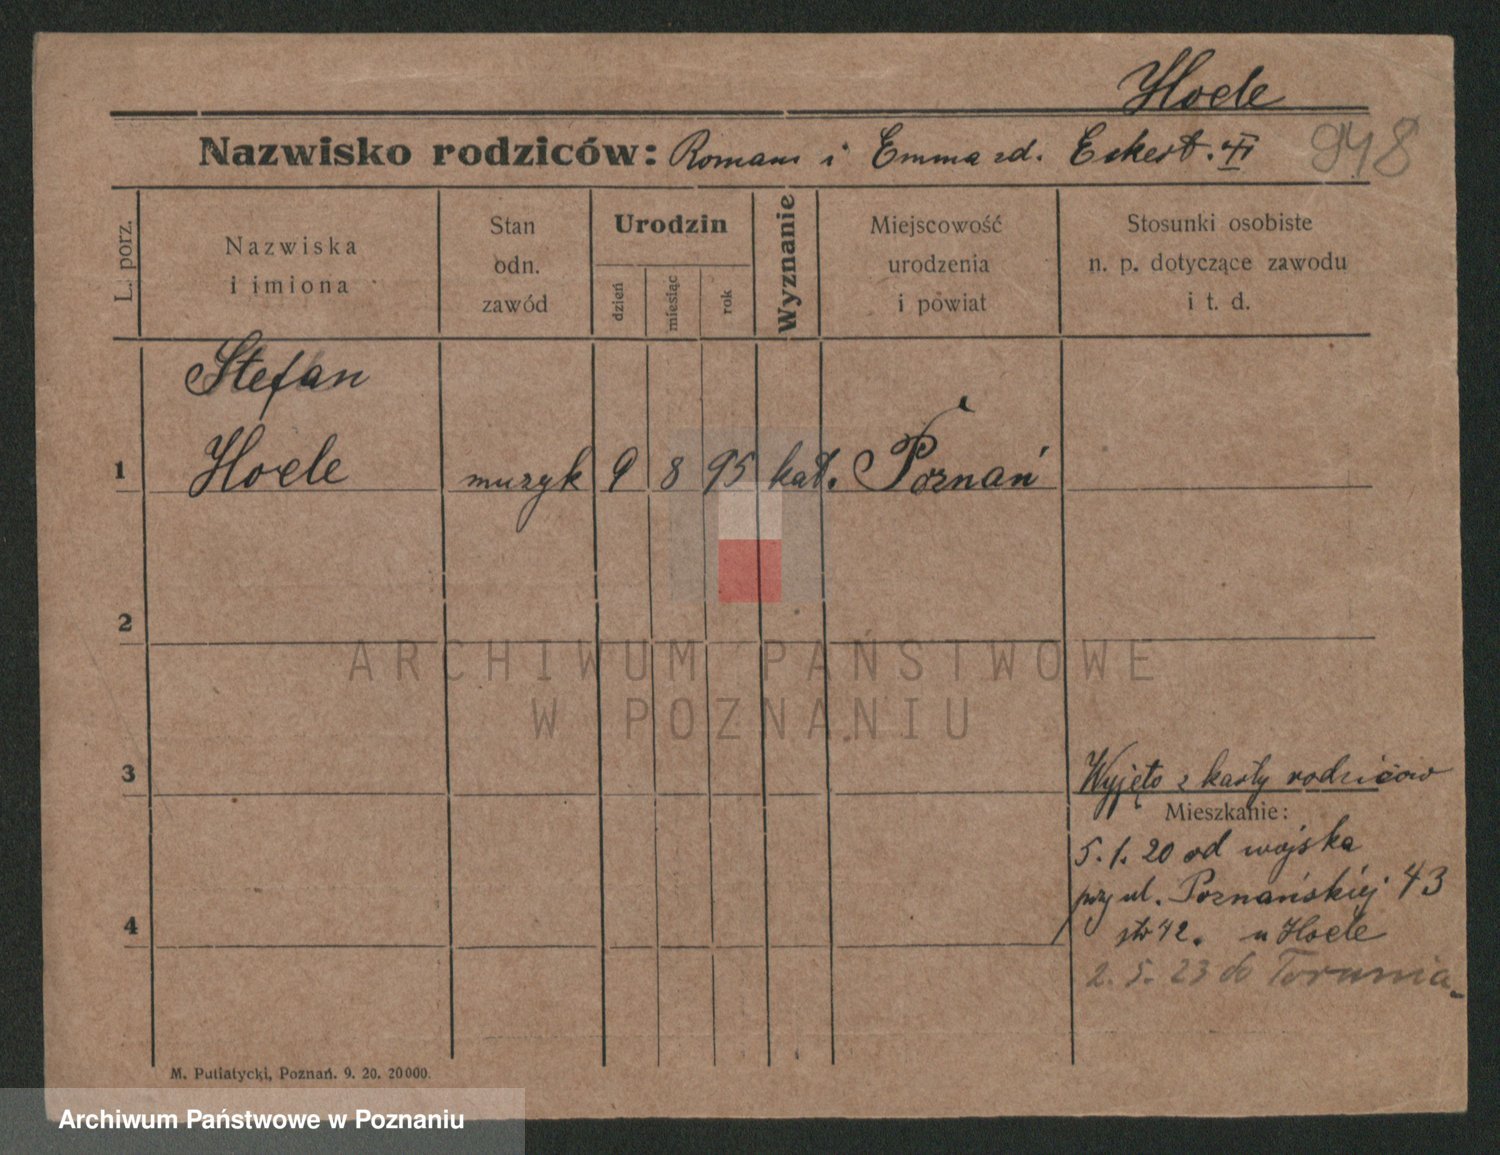 Hoele
Nazwisko rodziców: Roman i Emma zd. Eckert. VI 948
L. porz.
Nazwiska i imiona
Stan odn. zawód
Urodzin
dzień miesiąc rok
Wyznanie
Miejscowość urodzenia i powiat
Stosunki osobiste n. p. dotyczące zawodu i t. d.
Stefan
1 Hoele muzyk 9 8 95 kat. Poznań
2
ARCHIWUM PAŃSTWOWE
W POZNANIU
3
Wyjęto z karty rodziców
Mieszkanie:
5. 1. 20 od wojska
przy ul. Poznańskiej 43
4
42. u Hoele
2. 5. 23 do Torunia
M. Putiatycki, Poznań. 9. 20. 20000.
Archiwum Państwowe w Poznaniu